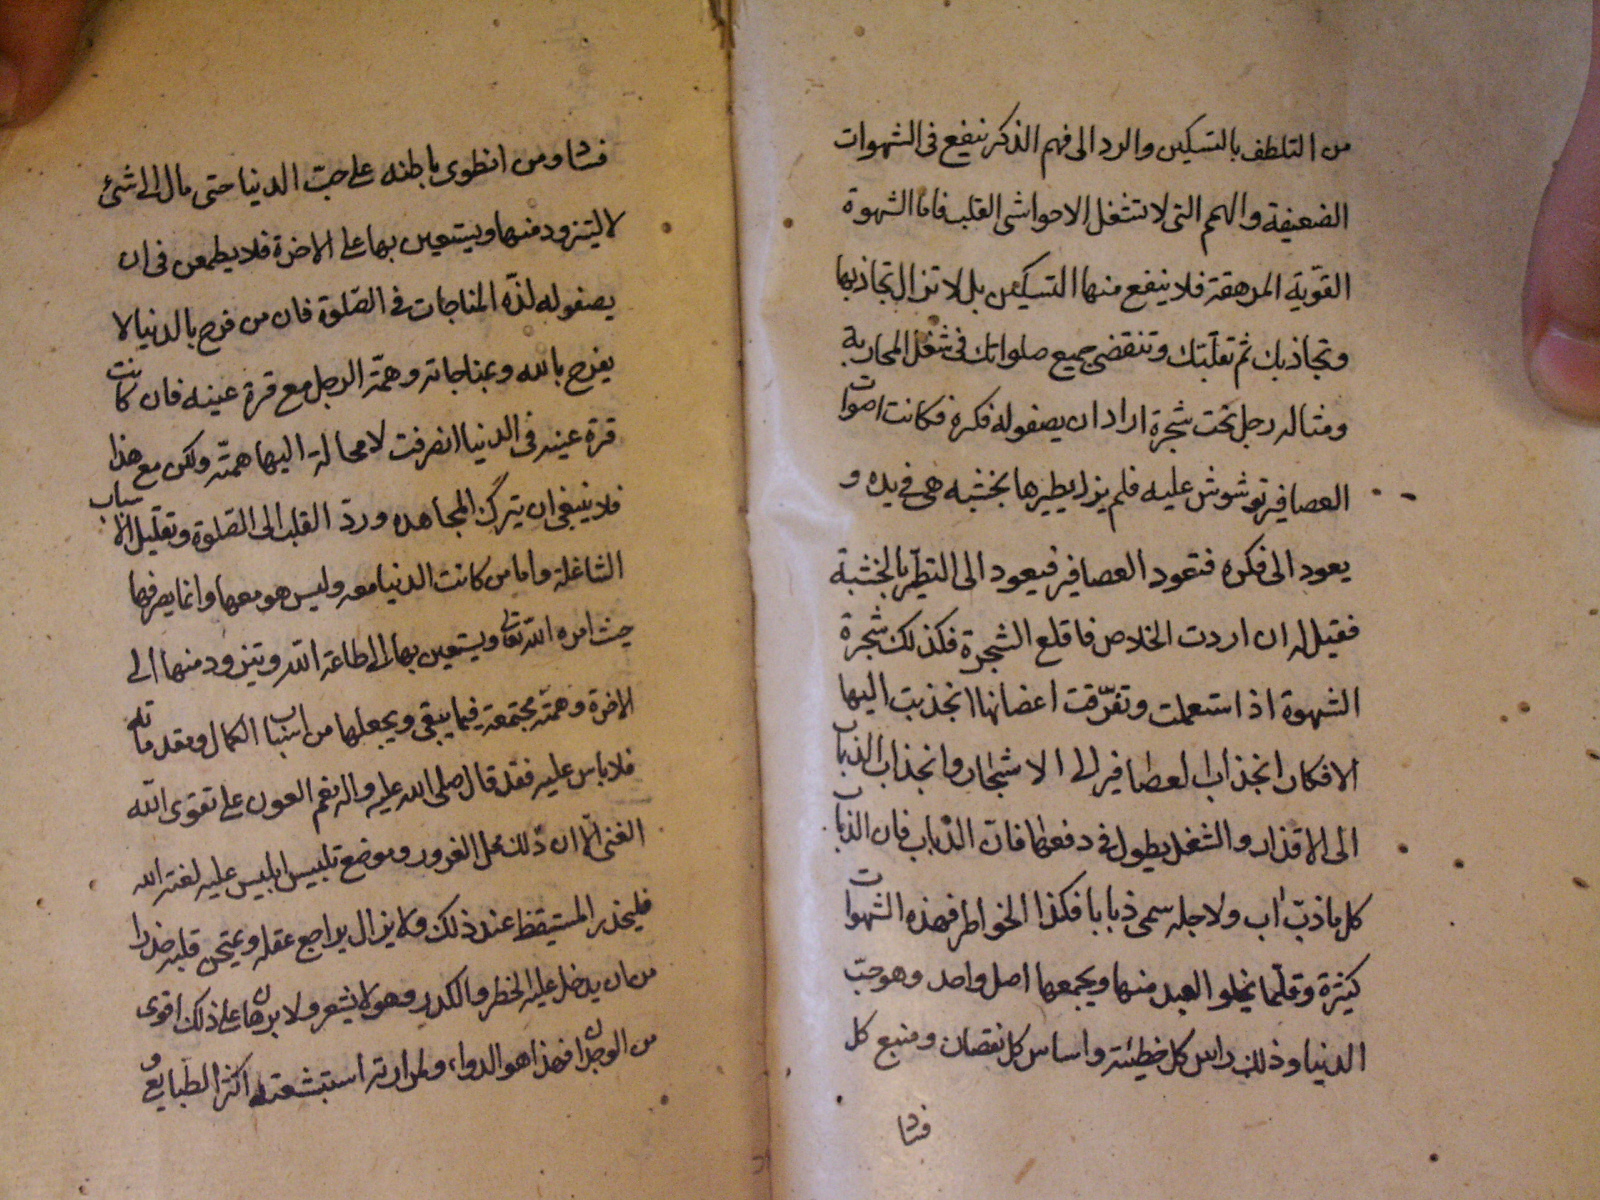 من التلطف بالتسكين والرد الى فهم الذكر ينفع فى الشهوات
الضعيفة والهمم التى لا تشغل الا حواشى القلب فاما الشهوة
القوّية المرهقة فلا ينفع منها التسكين بل لا تزال تجاذبها
وتجاذبك ثم تغلبك وتنقضى جميع صلواتك فى شغل المحاربة
ومثاله رجل تحت شجرة اراد ان يصفو له فكره فكانت اصوات
العصافير تشوش عليه فلم يزل يطيرها بخشبه هى فى يده و
يعود الى فكره فتعود العصافير فيعود الى التطير بالخشبة
فقيل له ان اردت الخلاص فاقلع الشجرة فكذلك شجرة
الشهوة اذا استعملت وتفرّقت اغصانها انجذبت اليها
الافكار انجذاب العصافير الى الاشجار وانجذاب الذباب
الى الاقذار والشغل يطول فى دفعها فان الذباب فان الذباب
كل ماذبّ اب ولاجله سمى ذبابا فكذا الخواطر فهذه الشهوات
كثيرة وقلّما يخلو العبد منها ويجمعها اصل واحد وهو حبّ
الدنيا وذلك راس كل خطيئة واساس كل نقصان ومنبع كل
فساد
فساد ومن انطوى باطنه على حبّ الدنيا حتى مال الى شئ
لا ليتزود منها ويستعين بها على الاخرة فلا يطمعن فى ان
يصفو له لذّه المناجات فى الصّلوة فان من فرح بالدنيا لا
يفرح بالله وبمناجاته وهمّة الرجل مع قرة عينه فان كانت
قرة عينه فى الدنيا انصرفت لا محالة اليها همتّه ولكن مع هذا
فلا ينبغى ان يترك المجاهده وردّ القلب الى الصّلوة وتقليل الاسباب
الشاغلة واما من كانت الدنيا معه وليس هو معها وانما يصرفها
حيث امره الله تعالى ويستعين بها الى طاعة الله ويتزود منها الى
الاخرة وهمتّه مجتمعة فيما يبقى ويجعلها من اسباب الكمال ومقدماته
فلا باس عليه فقد قال صلى الله عليه واله نعم العون على تقوى الله
الغنى الّا ان ذلك محل الغرور وموضع تلبيس ابليس عليه لعنة الله
فليحذر المستيقظ عند ذلك ولا يزال يراجع عقله ويمتحن قلبه حذرا
من ان يدخل عليه الخطر والكدر وهو لا يشعر ولا برهان على ذلك اقوى
من الوجدان فهذا هو الدواء ولمرارته استبشعته اكثر الطبايع و